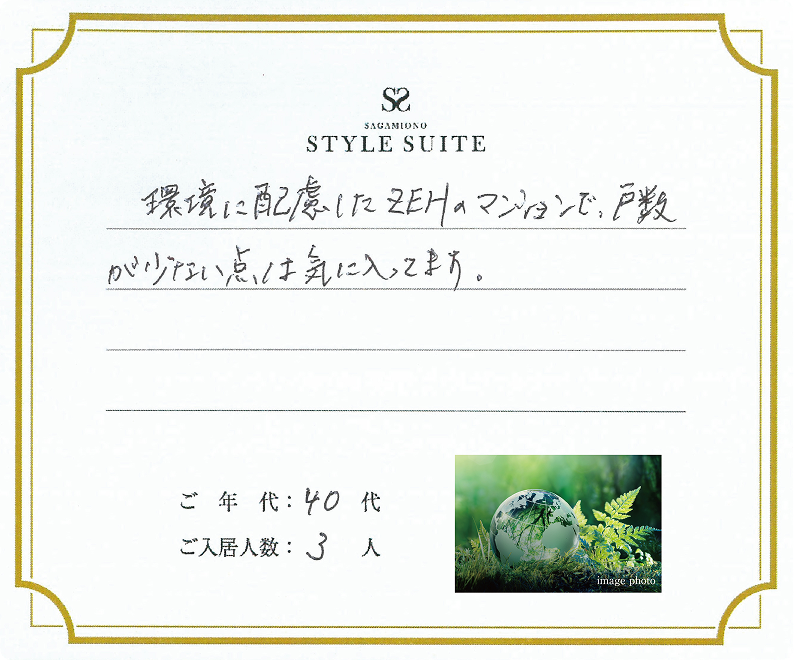 SS
SAGAMIONO
STYLE SUITE
環境に配慮したZEHのマンションで、戸数
が少ない点は気に入ってます。
ご年代：40代
ご入居人数：3人
image photo